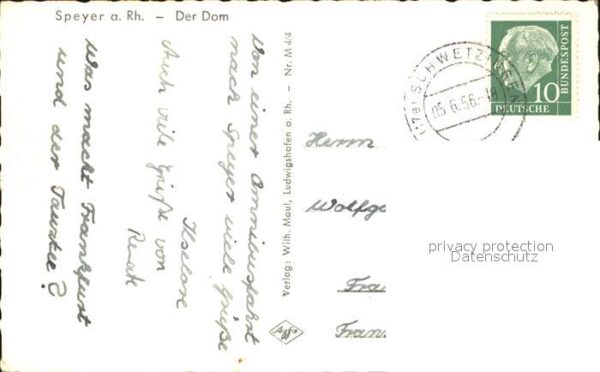 Speyer a. Rh. – Der Dom
Von einer Omnibusfahrt
nach Speyer viele Grüße
Ilselore
Auch viele Grüße von
Renate
Was macht Frankfurt
und der Tanztee?
Verlag: Wilh. Maul, Ludwigshafen a. Rh. – Nr. M 4/4
Agfa
(17a) SCHWETZINGEN
05.6.56.
10
DEUTSCHE
BUNDESPOST
Herrn
Wolfg
Fra
Fran
privacy protection
Datenschutz